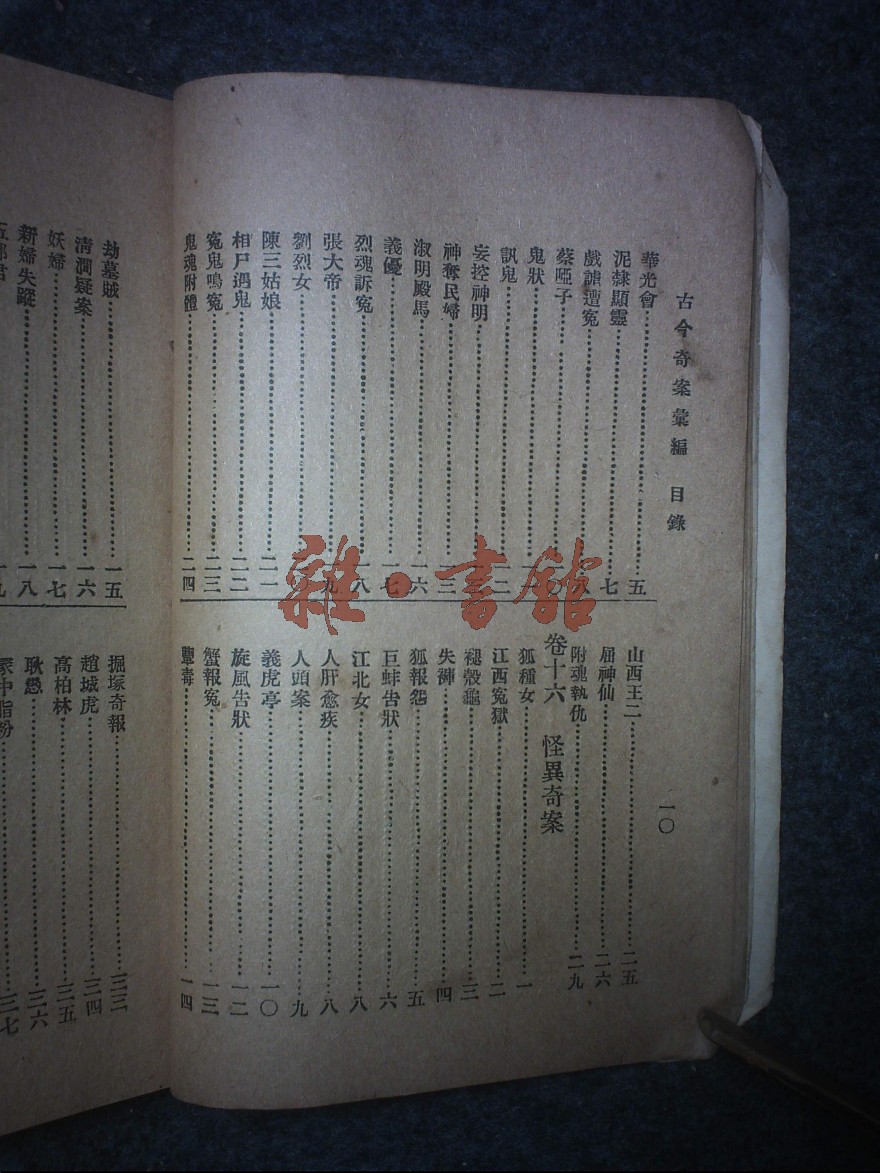 古今奇案彙編 目錄
一〇
華光會 五
泥隸顯靈 七
戲謔遭冤
蔡啞子
鬼狀
訊鬼
妄控神明
神奪民婦
淑明殿馬 一六
義優
烈魂訴冤 一八
張大帝
劉烈女
陳三姑娘 二一
相尸遇鬼 二二
冤鬼鳴冤 二三
鬼魂附體 二四
山西王二 二五
屈神仙 二六
附魂執仇 二九
卷十六 怪異奇案
狐種女 一
江西冤獄 二
褪殼龜 三
失褲 四
狐報怨 五
巨蚌告狀 六
江北女 八
人肝愈疾 八
人頭案 九
義虎亭 一〇
旋風告狀 一二
蟹報冤 一三
蠱毒 一四
劫墓賊 一五
清澗疑案 一六
妖婦 一七
新婦失蹤 一八
五郎君 一九
掘塚奇報 三三
趙城虎 三四
高柏林 三五
耿愚 三六
中脂粉 三七
雜·書館